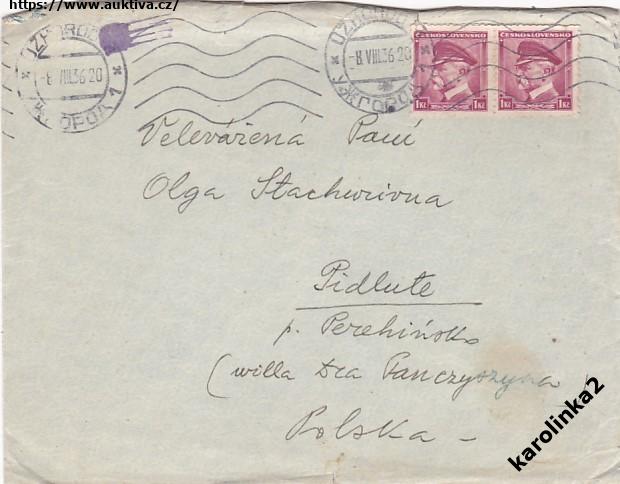 https://www.auktiva.cz/
UŽHOROD
-8.VIII.36 20
УЖГОРОД 1
UŽHOROD
-8.VIII.36 20
УЖГОРОД 1
ČESKOSLOVENSKO
1Kč
ČESKOSLOVENSKO
1Kč
Velevážená Paní
Olga Stachurivna
Pidlute
p. Perehińsko
(willa Dra Panczyszyna)
Polska -
karolinka2